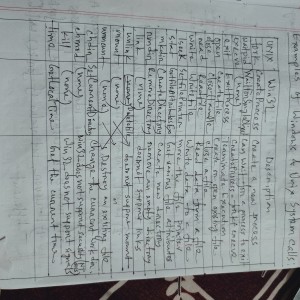 Examples of Windows & Unix System Calls.
Unix Win32 Description
fork CreateProcess Create a new process
waitpid WaitForSingleObject Can wait for a process to exit
execve (none) CreateProcess = fork + execve
exit ExitProcess Terminate execution
open CreateFile Create a file or open existing file
close CloseHandle Close a file
read ReadFile Read data from a file
write WriteFile Write data to a file
lseek SetFilePointer Move the file pointer
stat GetFileAttributesEx Get various file attributes
mkdir CreateDirectory Create new directory
rmdir RemoveDirectory Remove an empty directory
link (none) Win32 does not support links
unlink
mount (none) does not support mount
umount (none)
Destroy an existing file
chdir SetCurrentDirectory Change the current working dir
chmod (none) Win32 does not support security
kill (none) Win32 does not support signals
time GetLocalTime Get the current time